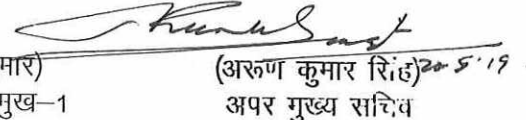 मार) (अरूण कुमार सिंह) 20-5-19
मुख–1 अपर मुख्य सचिव